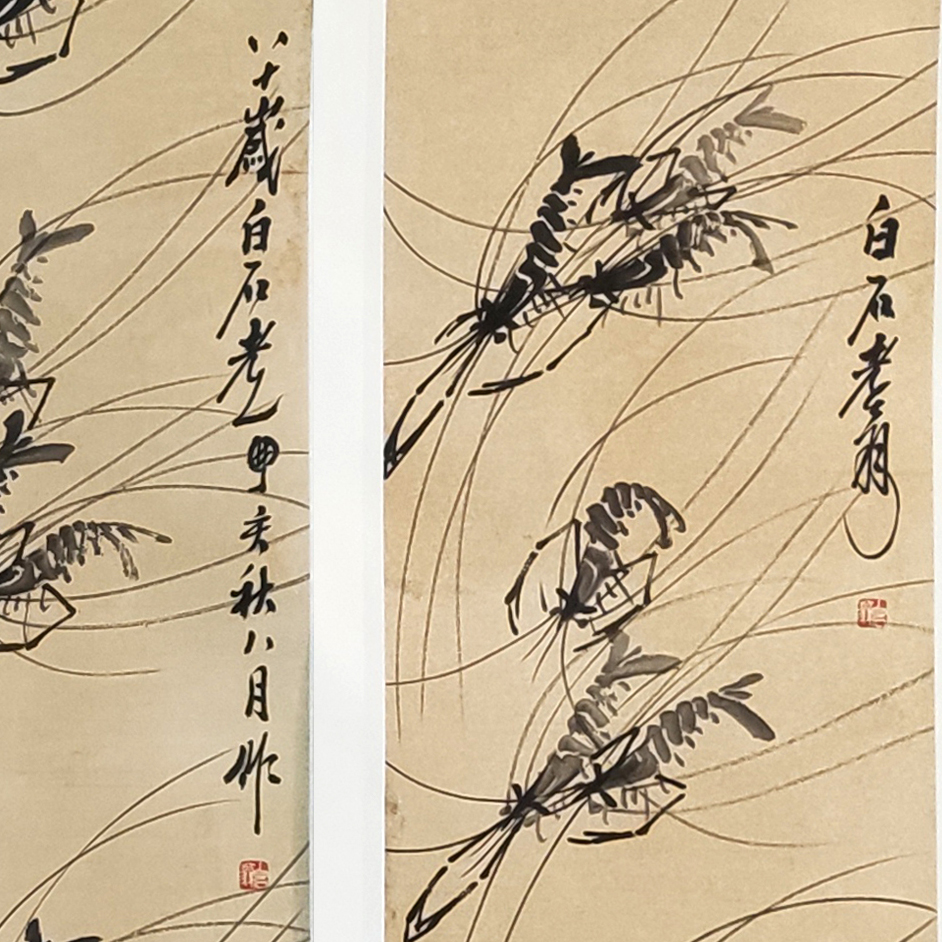 白石老翁
八十歲白石老人甲亥秋八月作